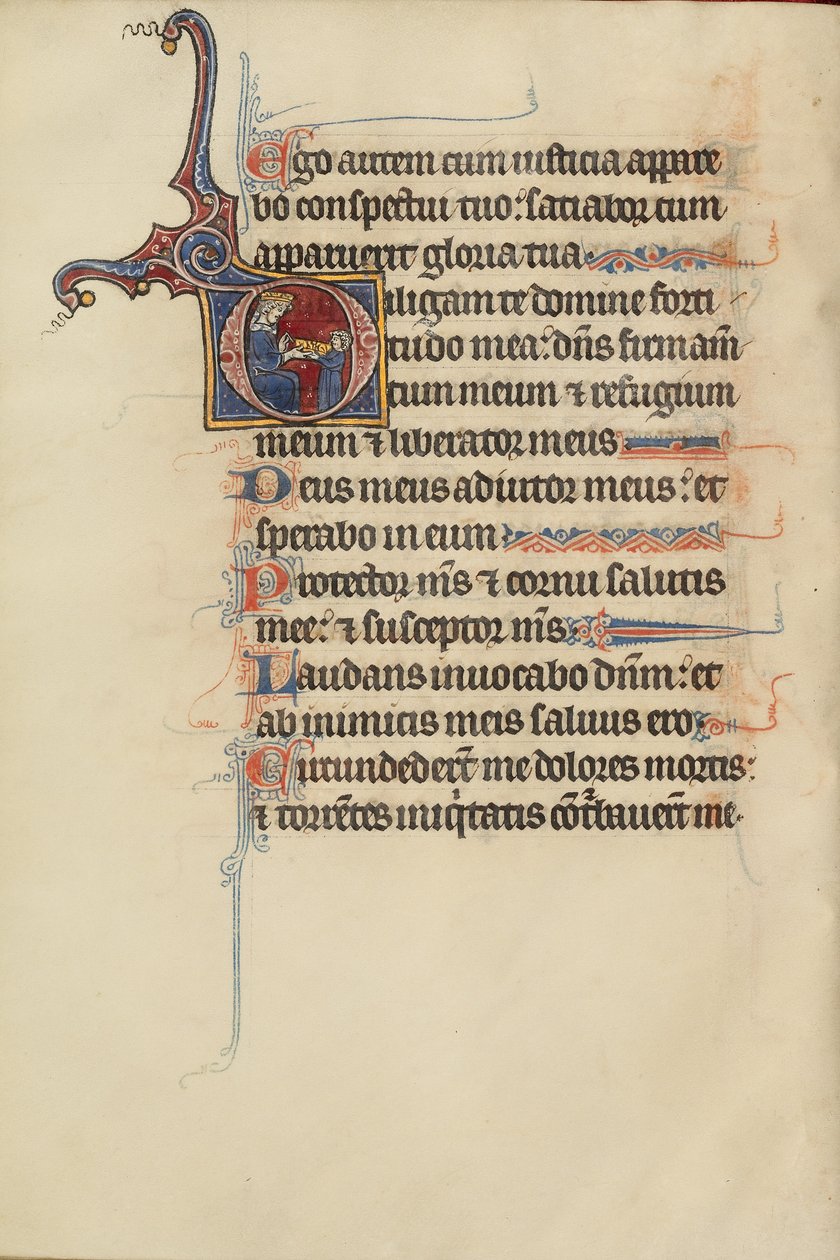 Ego autem cum iusticia appare
bo conspectui tuo: satiabor cum
apparuerit gloria tua.
Diligam te domine forti
tudo mea: dñs firmam̄
tum meum ⁊ refugium
meum ⁊ liberator meus
Deus meus adiutor meus: et
sperabo in eum
Protector m̄s ⁊ cornu salutis
mee: ⁊ susceptor m̄s
Laudans inuocabo dñm: et
ab inimicis meis saluus ero
Circundeder̄t me dolores mortis:
⁊ torrētes iniqⁱtatis cōtᵃbauer̄t me.